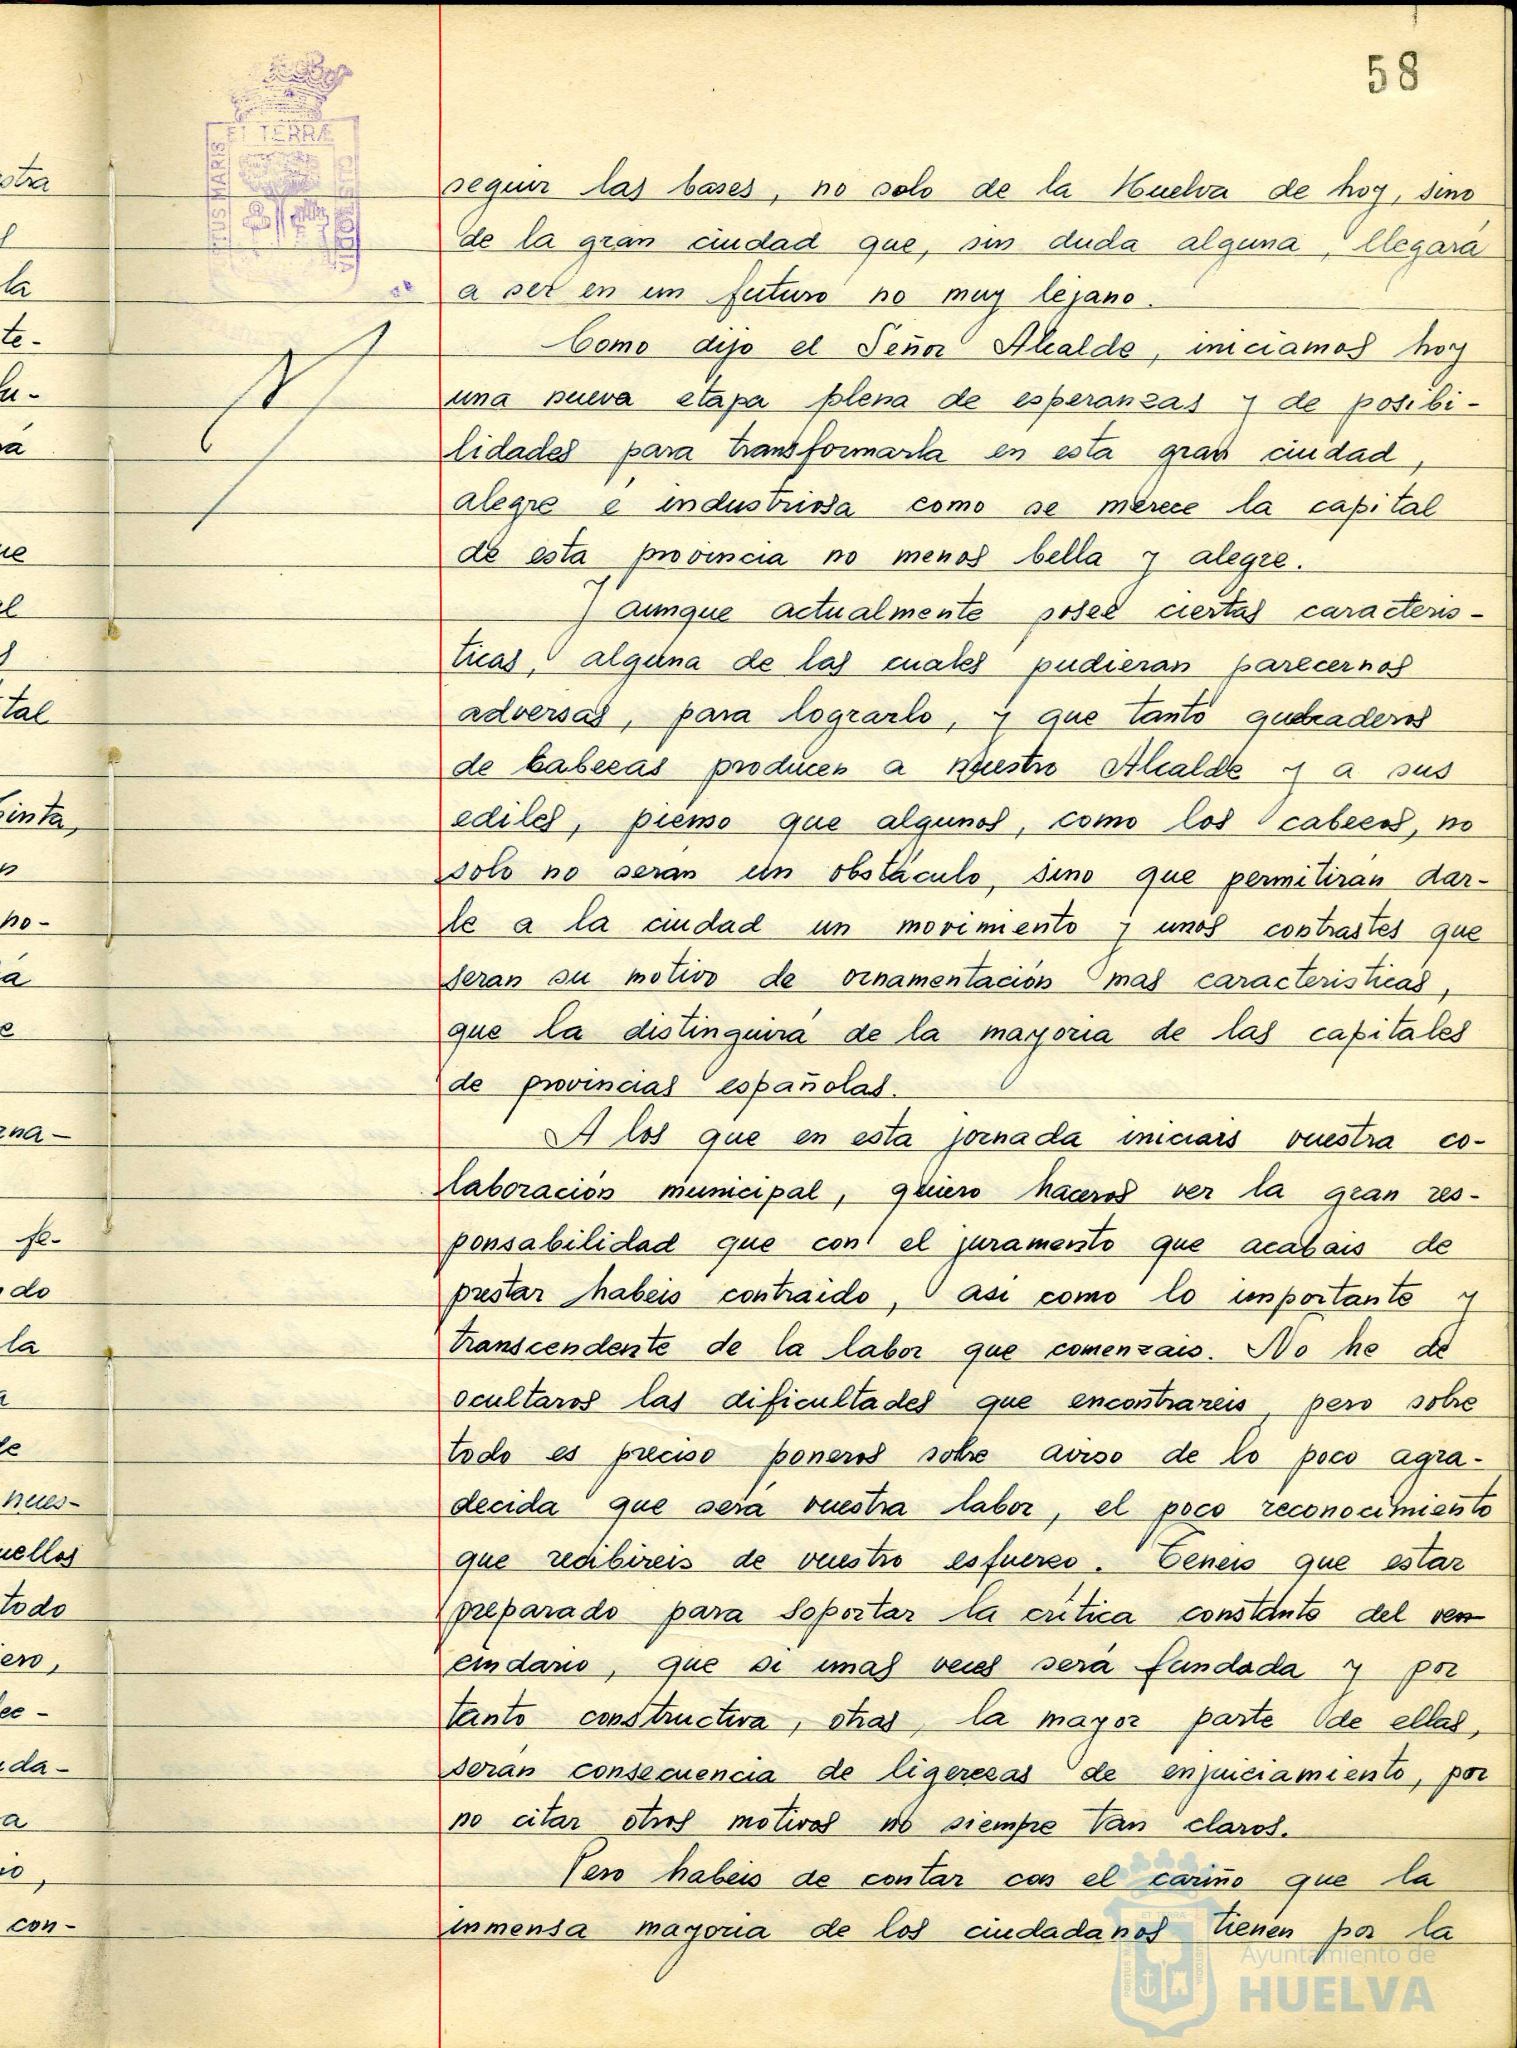 58
ET TERRÆ
TUS MARIS
CUSTODIA
seguir las bases, no solo de la Huelva de hoy, sino
de la gran ciudad que, sin duda alguna, llegará
a ser en un futuro no muy lejano.
Como dijo el Señor Alcalde, iniciamos hoy
una nueva etapa plena de esperanzas y de posibi-
lidades para transformarla en esta gran ciudad,
alegre é industriosa como se merece la capital
de esta provincia no menos bella y alegre.
Y aunque actualmente posee ciertas caracteris-
ticas, alguna de las cuales pudieran parecernos
adversas, para lograrlo, y que tanto quebraderos
de cabezas producen a nuestro Alcalde y a sus
ediles, pienso que algunos, como los cabezos, no
solo no serán un obstáculo, sino que permitirán dar-
le a la ciudad un movimiento y unos contrastes que
seran su motivo de ornamentación mas caracteristicas,
que la distinguirá de la mayoria de las capitales
de provincias españolas.
A los que en esta jornada iniciais vuestra co-
laboración municipal, quiero haceros ver la gran res-
ponsabilidad que con el juramento que acabais de
prestar habeis contraido, asi como lo importante y
transcendente de la labor que comenzais. No he de
ocultaros las dificultades que encontrareis, pero sobre
todo es preciso poneros sobre aviso de lo poco agra-
decida que será vuestra labor, el poco reconocimiento
que recibireis de vuestro esfuerzo. Teneis que estar
preparado para soportar la crítica constante del ve-
cindario, que si unas veces será fundada y por
tanto constructiva, otras, la mayor parte de ellas,
serán consecuencia de ligerezas de enjuiciamiento, por
no citar otros motivos no siempre tan claros.
Pero habeis de contar con el cariño que la
inmensa mayoria de los ciudadanos tienen por la
otra
la
te-
lu-
tal
Cinta,
no-
rna-
fe-
do
la
nues-
uellos
todo
ero,
da-
con-
Ayuntamiento de
HUELVA